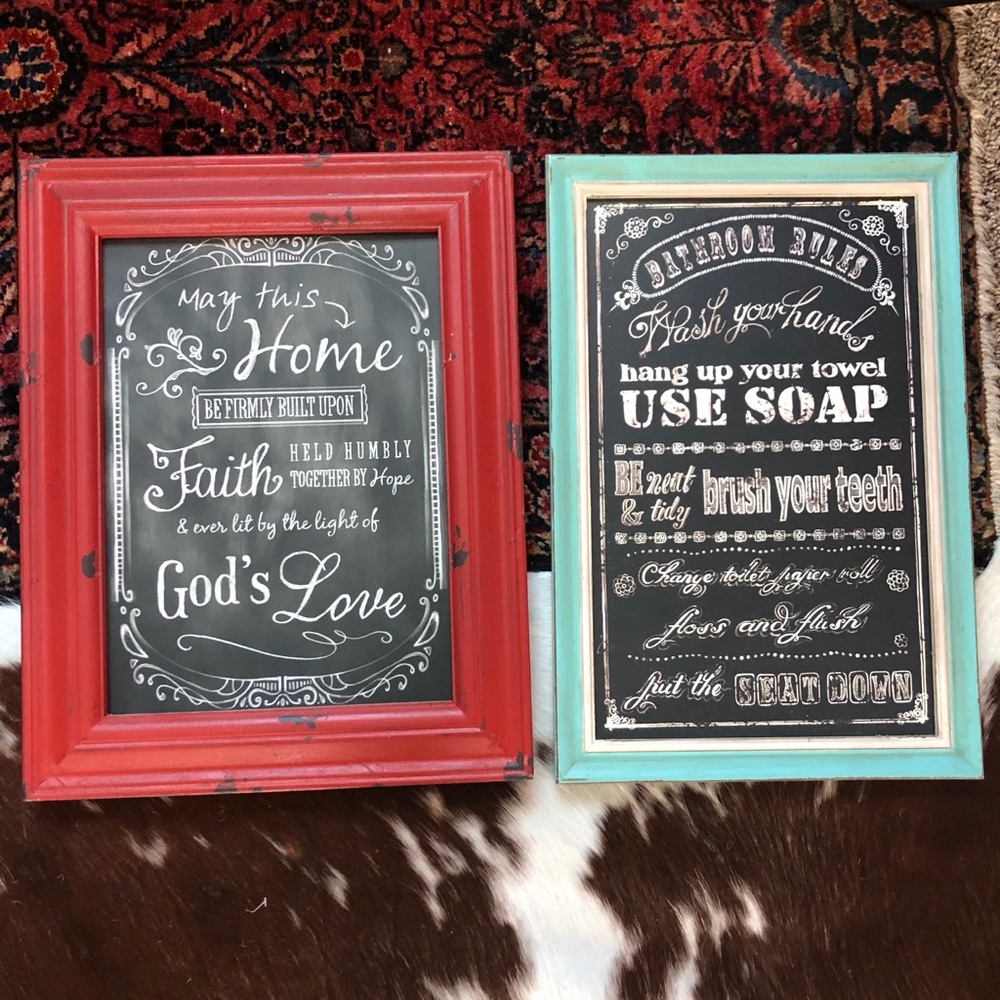 May this
Home
BE FIRMLY BUILT UPON
Faith HELD HUMBLY
TOGETHER BY Hope
& ever lit by the light of
God's Love
BATHROOM RULES
Wash your hands
hang up your towel
USE SOAP
BE neat
& tidy brush your teeth
Change toilet paper roll
floss and flush
put the SEAT DOWN